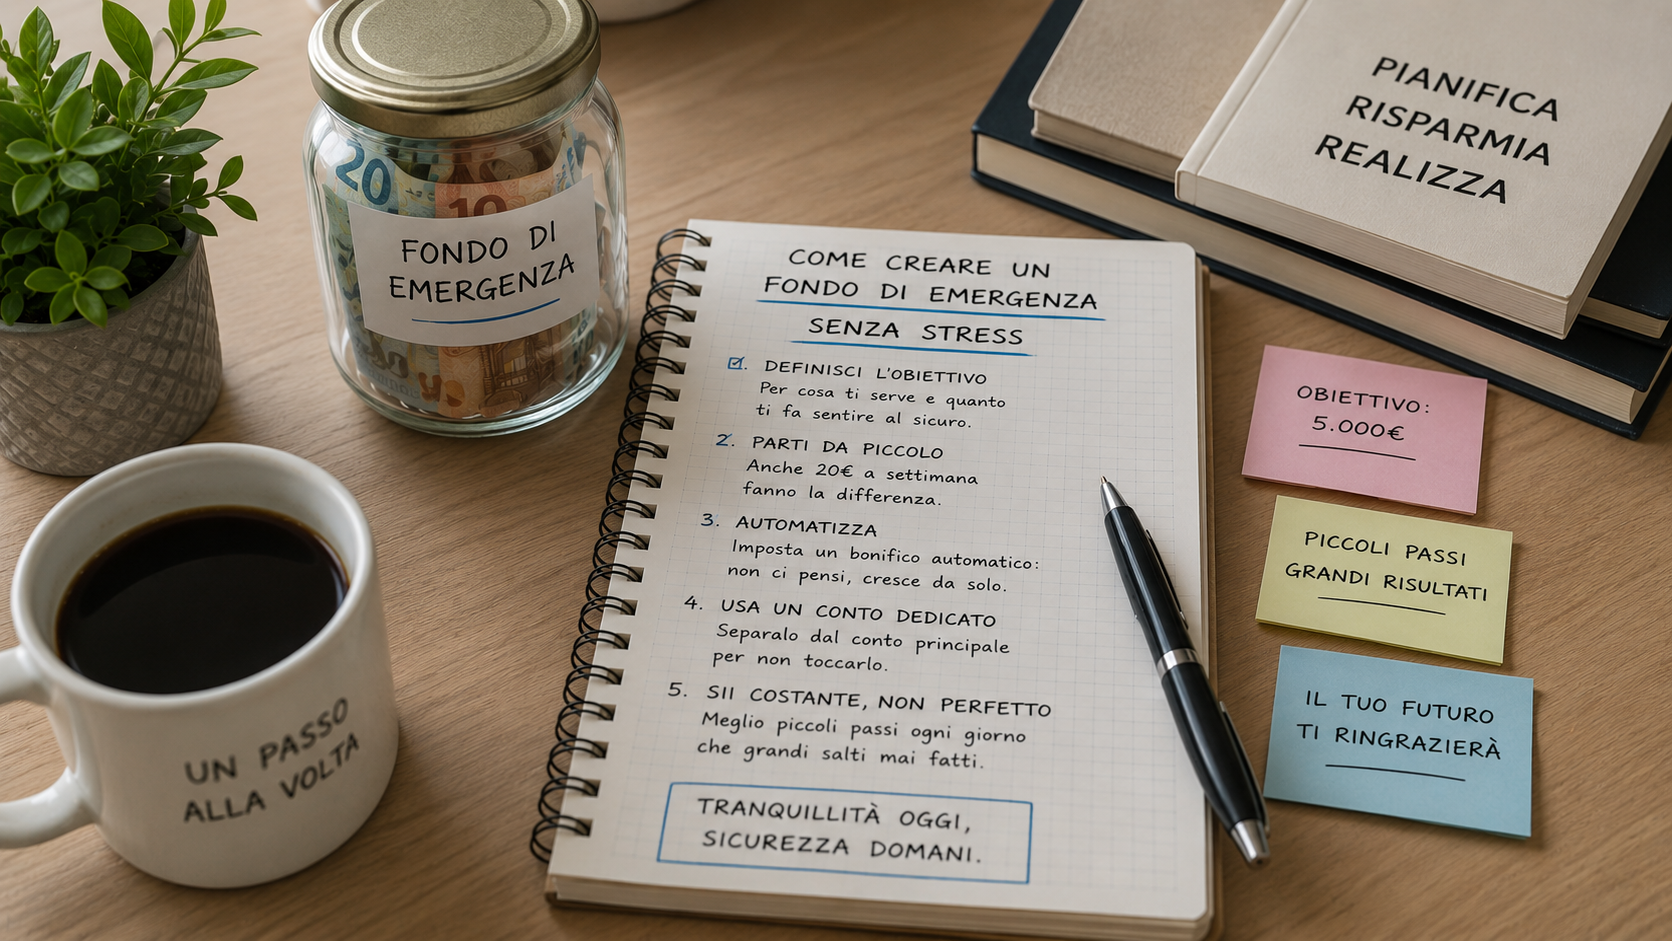 20
10
FONDO DI
EMERGENZA
PIANIFICA
RISPARMIA
REALIZZA
COME CREARE UN
FONDO DI EMERGENZA
SENZA STRESS
1. DEFINISCI L'OBIETTIVO
Per cosa ti serve e quanto
ti fa sentire al sicuro.
2. PARTI DA PICCOLO
Anche 20€ a settimana
fanno la differenza.
3. AUTOMATIZZA
Imposta un bonifico automatico:
non ci pensi, cresce da solo.
4. USA UN CONTO DEDICATO
Separalo dal conto principale
per non toccarlo.
5. SII COSTANTE, NON PERFETTO
Meglio piccoli passi ogni giorno
che grandi salti mai fatti.
TRANQUILLITÀ OGGI,
SICUREZZA DOMANI.
OBIETTIVO:
5.000€
PICCOLI PASSI
GRANDI RISULTATI
IL TUO FUTURO
TI RINGRAZIERÀ
UN PASSO
ALLA VOLTA